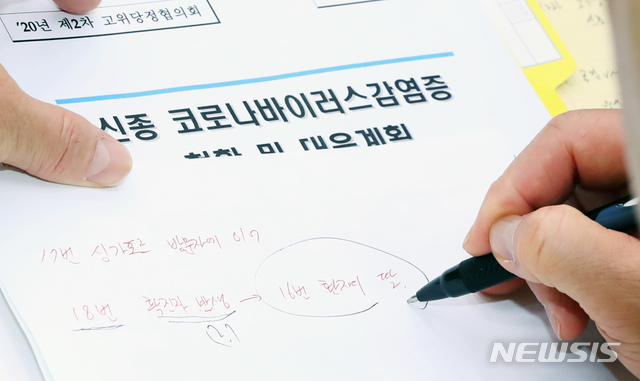 '20년 제2차 고위당정협의회
신종 코로나바이러스감염증
현황 및 대응계획
17번 싱가포르 방문자에 이?
18번 확진자 발생 → 16번 환자의 딸.
NEWSIS